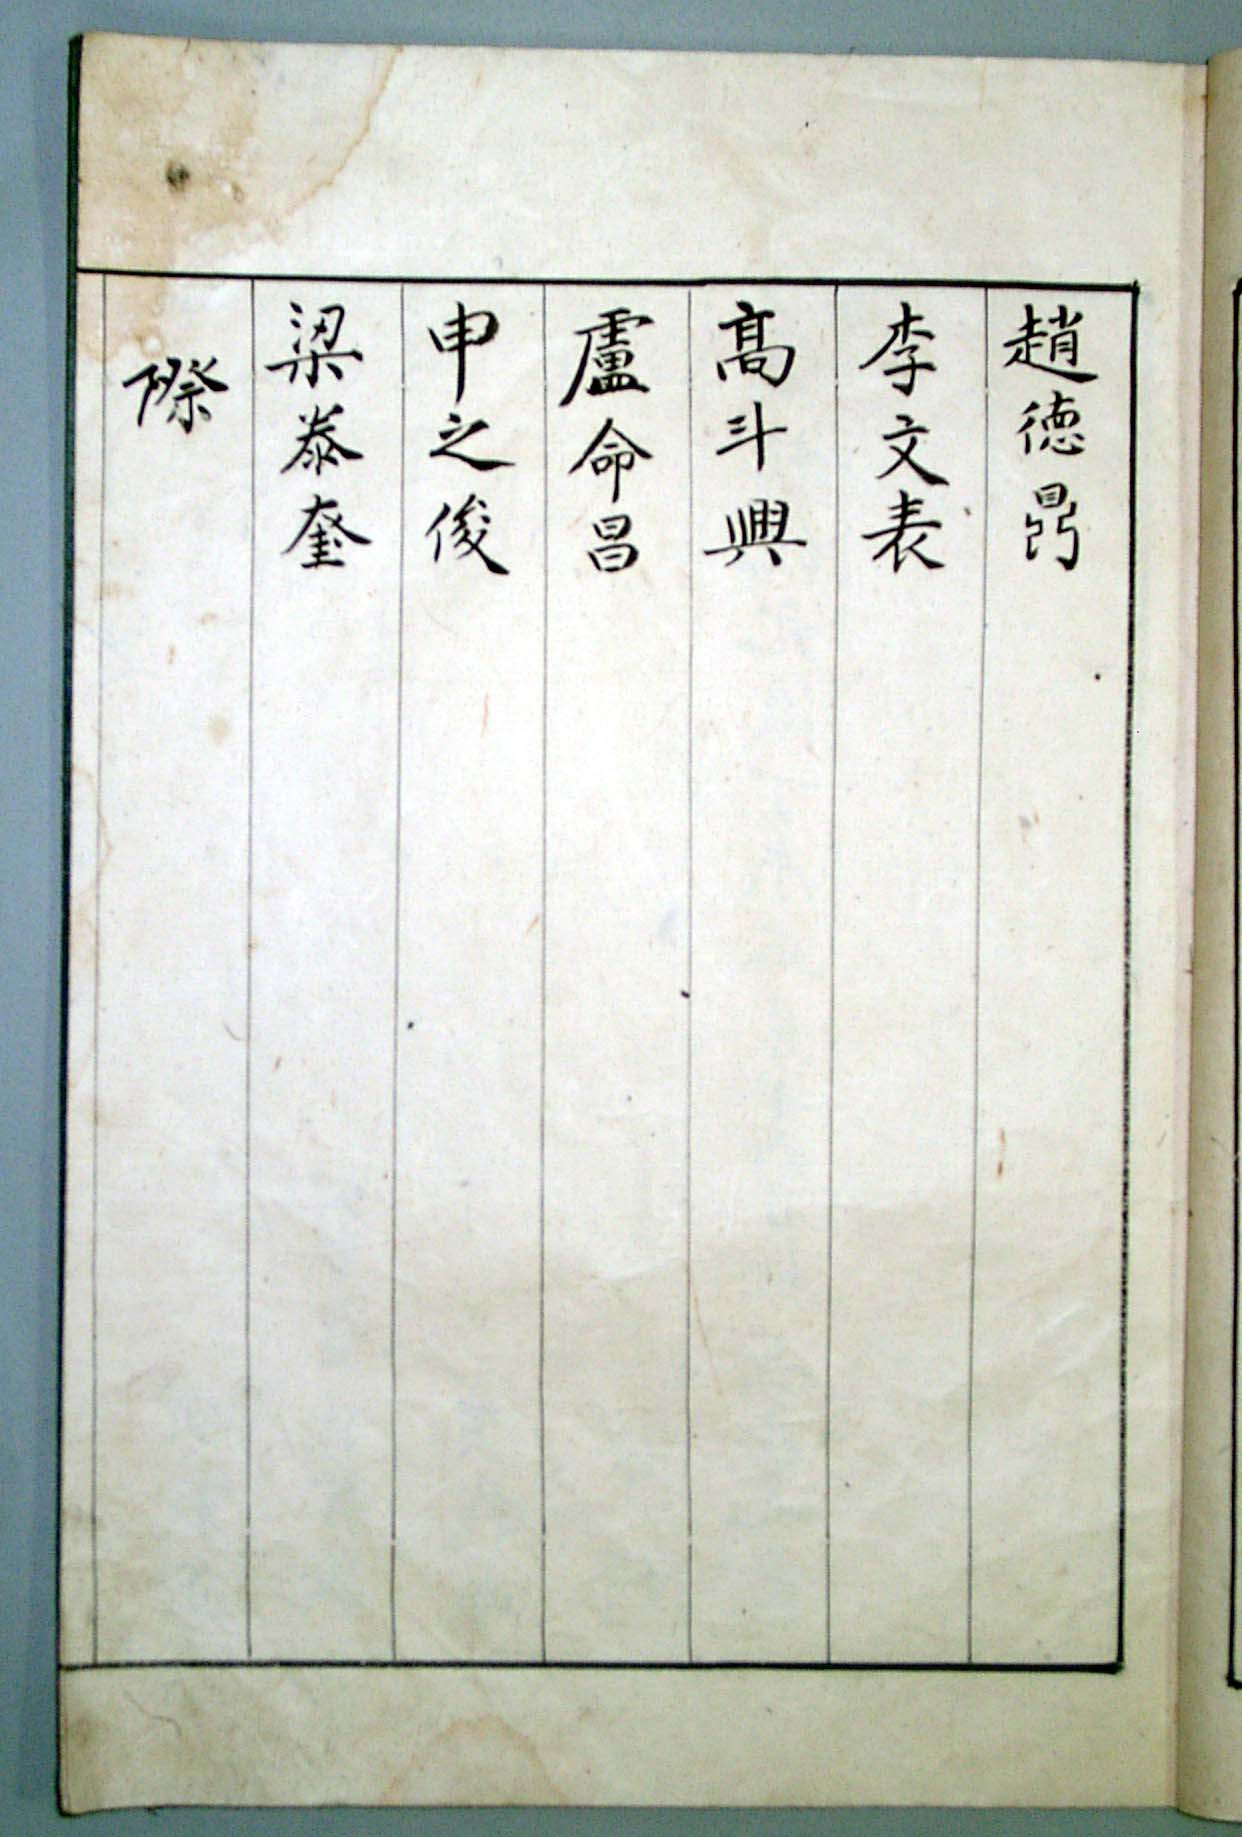 趙德鼎
李文表
高斗興
盧命昌
申之俊
梁泰奎
際